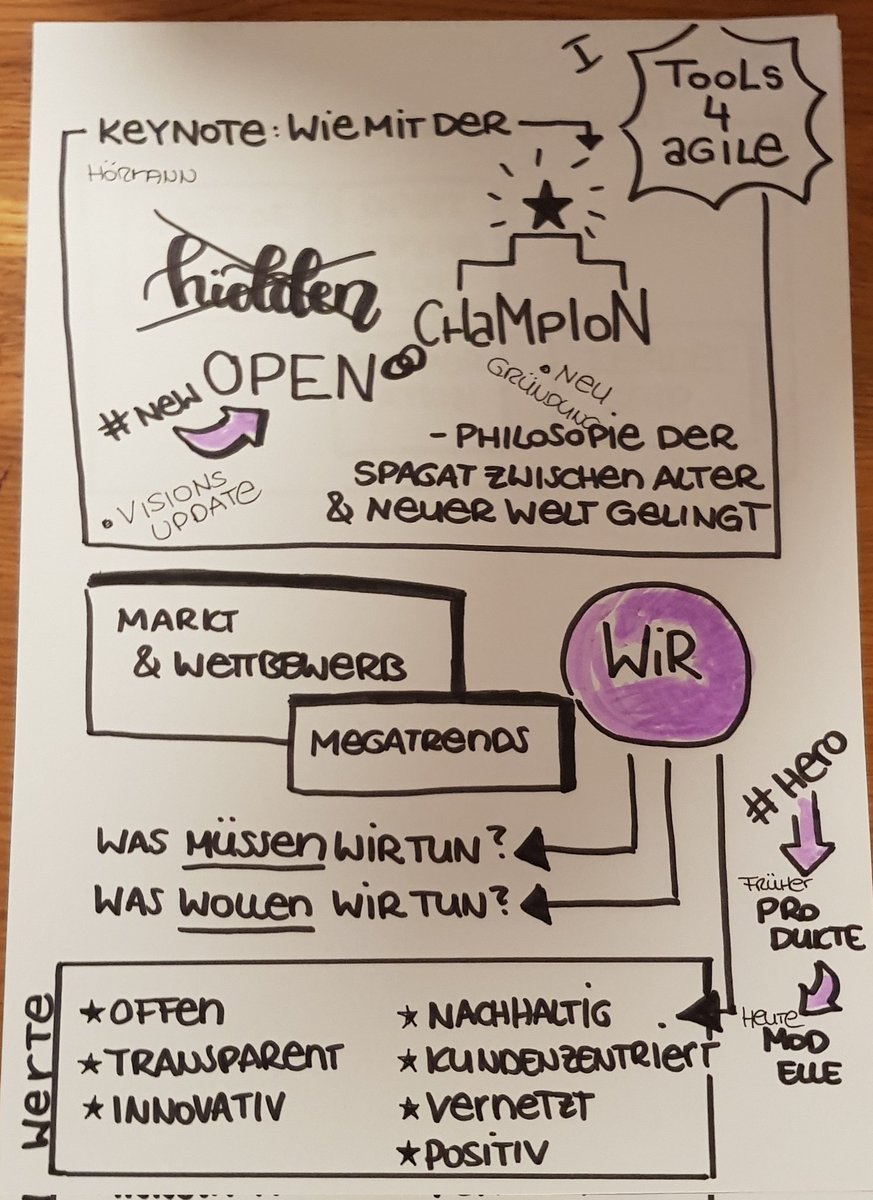 I
TOOLS
4
AGILE
KEYNOTE: WIE MIT DER
HÖRMANN
hidden
CHAMPION
#NEW OPEN
• NEU
GRÜNDUNG
- PHILOSOPIE DER
SPAGAT ZWISCHEN ALTER
& NEUER WELT GELINGT
• VISIONS
UPDATE
MARKT
& WETTBEWERB
MEGATRENDS
WIR
#HERO
WAS MÜSSEN WIR TUN?
WAS WOLLEN WIR TUN?
FRÜHER
PRO
DUKTE
HEUTE
MOD
ELLE
WERTE
★ OFFEN
★ TRANSPARENT
★ INNOVATIV
★ NACHHALTIG
★ KUNDENZENTRIERT
★ VERNETZT
★ POSITIV